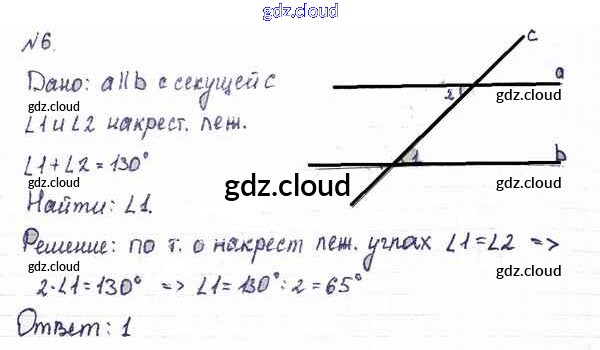 gdz.cloud
№6.
c
Дано: a||b с секущей c
a
gdz.cloud
gdz.cloud
2
∠1 и ∠2 накрест. леж.
∠1+∠2=130°
1
b
gdz.cloud
gdz.cloud
gdz.cloud
Найти: ∠1.
Решение: по т. о накрест леж. углах ∠1=∠2 =>
gdz.cloud
gdz.cloud
2·∠1=130° => ∠1=130°:2=65°
Ответ: 1